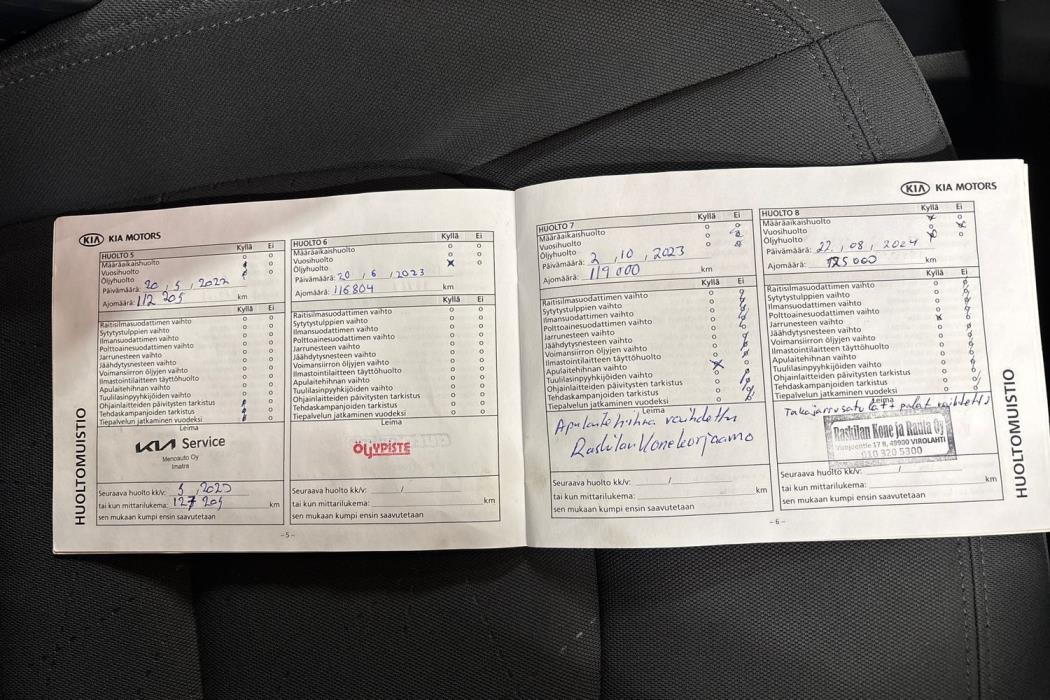 KIA KIA MOTORS
HUOLTO 5
Kyllä Ei
Määräaikaishuolto
Vuosihuolto
Öljyhuolto
Päivämäärä: 20 , 5 , 2022
Ajomäärä: 112 205 km
Kyllä Ei
Raitisilmasuodattimen vaihto
Sytytystulppien vaihto
Ilmansuodattimen vaihto
Polttoainesuodattimen vaihto
Jarrunesteen vaihto
Jäähdytysnesteen vaihto
Voimansiirron öljyjen vaihto
Ilmastointilaitteen täyttöhuolto
Apulaitehihnan vaihto
Tuulilasinpyyhkijöiden vaihto
Ohjainlaitteiden päivitysten tarkistus
Tehdaskampanjoiden tarkistus
Tiepalvelun jatkaminen vuodeksi
Leima
KIA Service
Menoauto Oy
Imatra
Seuraava huolto kk/v:
tai kun mittarilukema: 127 205 km
sen mukaan kumpi ensin saavutetaan
HUOLTOMUISTIO
HUOLTO 6
Kyllä Ei
Määräaikaishuolto
Vuosihuolto
Öljyhuolto
Päivämäärä: 20 , 6 , 2023
Ajomäärä: 116804 km
Kyllä Ei
Raitisilmasuodattimen vaihto
Sytytystulppien vaihto
Ilmansuodattimen vaihto
Polttoainesuodattimen vaihto
Jarrunesteen vaihto
Jäähdytysnesteen vaihto
Voimansiirron öljyjen vaihto
Ilmastointilaitteen täyttöhuolto
Apulaitehihnan vaihto
Tuulilasinpyyhkijöiden vaihto
Ohjainlaitteiden päivitysten tarkistus
Tehdaskampanjoiden tarkistus
Tiepalvelun jatkaminen vuodeksi
Leima
ÖLJYPISTE
Seuraava huolto kk/v: /
tai kun mittarilukema: km
sen mukaan kumpi ensin saavutetaan
-5-
HUOLTO 7
Kyllä Ei
Määräaikaishuolto
Vuosihuolto
Öljyhuolto
Päivämäärä: 2 , 10 , 2023
Ajomäärä: 119 000 km
Kyllä Ei
Raitisilmasuodattimen vaihto
Sytytystulppien vaihto
Ilmansuodattimen vaihto
Polttoainesuodattimen vaihto
Jarrunesteen vaihto
Jäähdytysnesteen vaihto
Voimansiirron öljyjen vaihto
Ilmastointilaitteen täyttöhuolto
Apulaitehihnan vaihto
Tuulilasinpyyhkijöiden vaihto
Ohjainlaitteiden päivitysten tarkistus
Tehdaskampanjoiden tarkistus
Tiepalvelun jatkaminen vuodeksi
Leima
Apulaitehihna vaihdettu
Raskilan Konekorjaamo
Seuraava huolto kk/v: /
tai kun mittarilukema: km
sen mukaan kumpi ensin saavutetaan
KIA KIA MOTORS
HUOLTO 8
Kyllä Ei
Määräaikaishuolto
Vuosihuolto
Öljyhuolto
Päivämäärä: 22 , 08 , 2024
Ajomäärä: 125 000 km
Kyllä Ei
Raitisilmasuodattimen vaihto
Sytytystulppien vaihto
Ilmansuodattimen vaihto
Polttoainesuodattimen vaihto
Jarrunesteen vaihto
Jäähdytysnesteen vaihto
Voimansiirron öljyjen vaihto
Ilmastointilaitteen täyttöhuolto
Apulaitehihnan vaihto
Tuulilasinpyyhkijöiden vaihto
Ohjainlaitteiden päivitysten tarkistus
Tehdaskampanjoiden tarkistus
Tiepalvelun jatkaminen vuodeksi
Leima
Takajarrusatulat + palat
Raskilan Kone ja Rauta Oy
17 B, 49900 VIROLAHTI
010 320 5300
Seuraava huolto kk/v: /
tai kun mittarilukema: km
sen mukaan kumpi ensin saavutetaan
-6-
HUOLTOMUISTIO